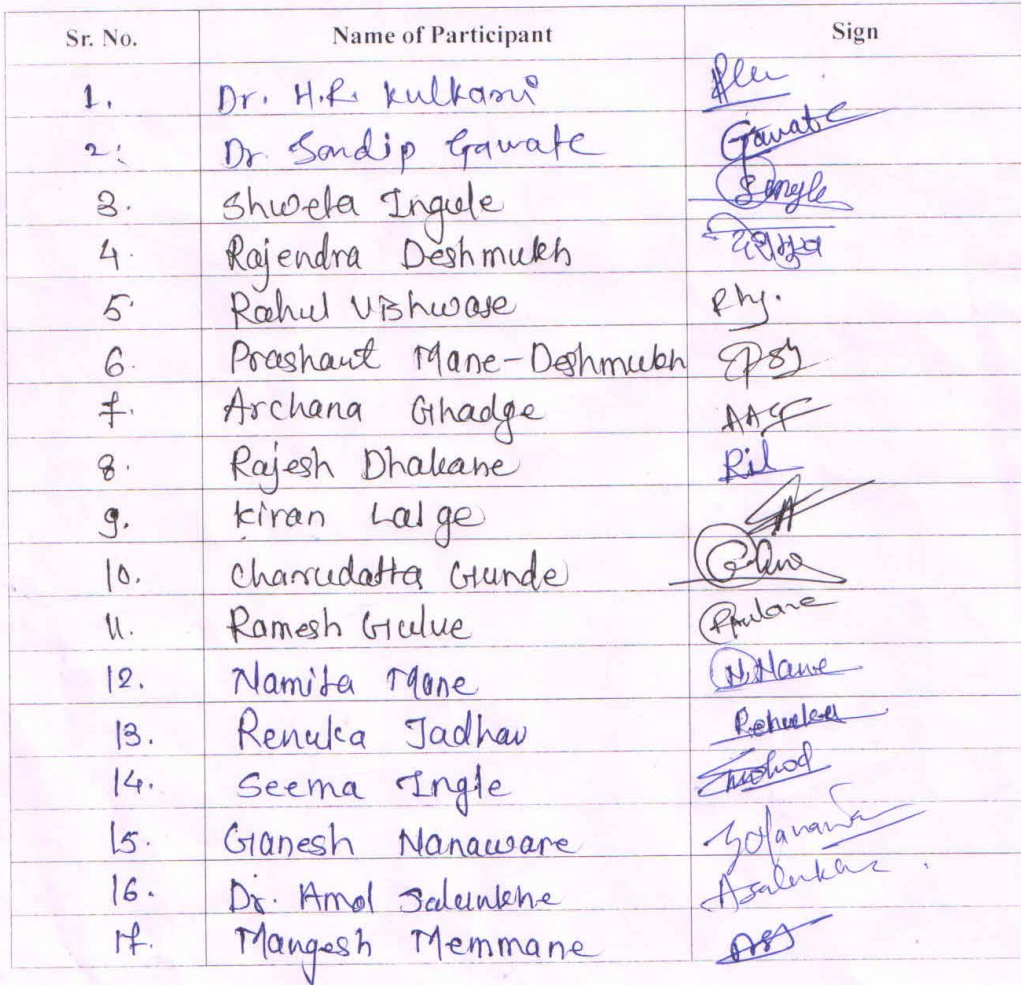 Sr. No. Name of Participant Sign
1. Dr. H.R. Kulkarni
2. Dr. Sandip Gawate Gawate
3. Shweta Ingule SIngle
4. Rajendra Deshmukh
5. Rahul VBhwase
6. Prashant Mane-Deshmukh
7. Archana Ghadge AAG
8. Rajesh Dhakane
9. Kiran Lalge
10. Charrudatta Gunde
11. Ramesh Gulue
12. Namita Mane N.Mane
13. Renuka Jadhav Renuka
14. Seema Ingle
15. Ganesh Nanaware
16. Dr. Amol Salunkhe Asalunkhe
17. Mangesh Memmane